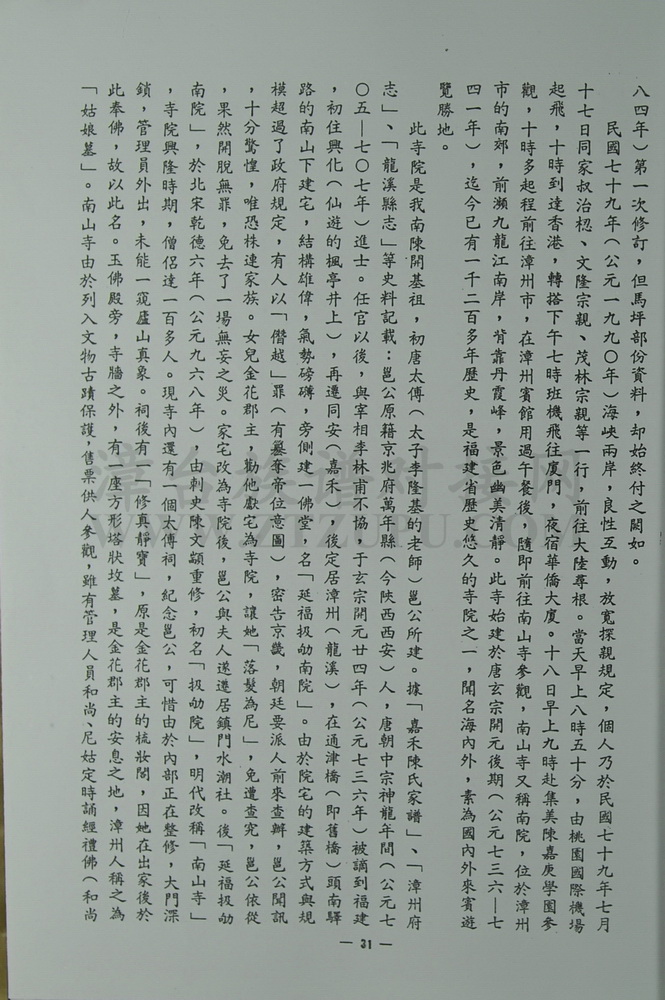 八四年）第一次修訂，但馬坪部份資料，却始終付之闕如。
民國七十九年（公元一九九〇年）海峽兩岸，良性互動，放寬探親規定，個人乃於民國七十九年七月
十七日同家叔治㮝、文隆宗親、茂林宗親等一行，前往大陸尋根。當天早上八時五十分，由桃園國際機場
起飛，十時到達香港，轉搭下午七時班機飛往廈門，夜宿華僑大廈。十八日早上九時赴集美陳嘉庚學園參
觀，十時多起程前往漳州市，在漳州賓館用過午餐後，隨即前往南山寺參觀，南山寺又稱南院，位於漳州
市的南郊，前瀕九龍江南岸，背靠丹霞峰，景色幽美清靜。此寺始建於唐玄宗開元後期（公元七三六—七
四一年），迄今已有一千二百多年歷史，是福建省歷史悠久的寺院之一，聞名海內外，素為國內外來賓遊
覽勝地。
此寺院是我南陳開基祖，初唐太傅（太子李隆基的老師）邕公所建。據「嘉禾陳氏家譜」、「漳州府
志」、「龍溪縣志」等史料記載：邕公原籍京兆府萬年縣（今陝西西安）人，唐朝中宗神龍年間（公元七
〇五—七〇七年）進士。任官以後，與宰相李林甫不協，于玄宗開元廿四年（公元七三六年）被謫到福建
，初住興化（仙遊的楓亭井上），再遷同安（嘉禾），後定居漳州（龍溪），在通津橋（即舊橋）頭南驛
路的南山下建宅，結構雄偉，氣勢磅礡，旁側建一佛堂，名「延福扱劬南院」。由於院宅的建築方式與規
模超過了政府規定，有人以「僭越」罪（有篡奪帝位意圖），密告京畿，朝廷要派人前來查辦，邕公聞訊
，十分驚惶，唯恐株連家族。女兒金花郡主，勸他獻宅為寺院，讓她「落髮為尼」，免遭查究，邕公依從
，果然開脫無罪，免去了一場無妄之災。家宅改為寺院後，邕公與夫人遂遷居鎮門水潮社。後「延福扱劬
南院」，於北宋乾德六年（公元九六八年），由刺史陳文顓重修，初名「扱劬院」，明代改稱「南山寺」
，寺院興隆時期，僧侶達一百多人。現寺內還有一個太傅祠，紀念邕公，可惜由於內部正在整修，大門深
鎖，管理員外出，未能一窺廬山真象。祠後有一「修真靜寶」，原是金花郡主的梳妝閣，因她在出家後於
此奉佛，故以此名。玉佛殿旁，寺牆之外，有一座方形塔狀坟墓，是金花郡主的安息之地，漳州人稱之為
「姑娘墓」。南山寺由於列入文物古蹟保護，售票供人參觀，雖有管理人員和尚、尼姑定時誦經禮佛（和尚
— 31 —